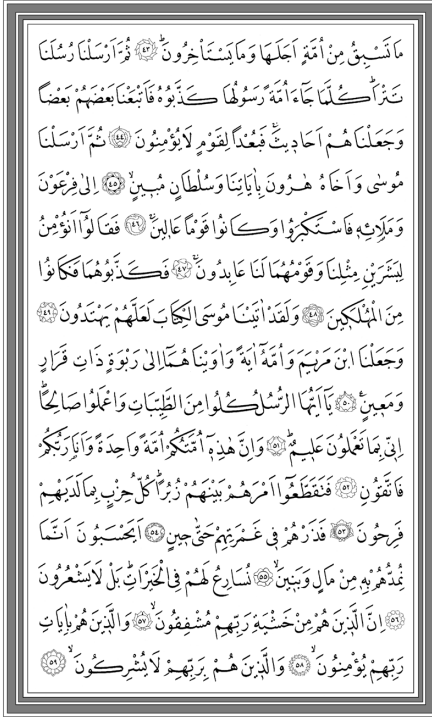 مَا تَسْبِقُ مِنْ اُمَّةٍ اَجَلَهَا وَمَا يَسْتَأْخِرُونَۜ ﴿٤٣﴾ ثُمَّ اَرْسَلْنَا رُسُلَنَا
تَتْرَاۜ كُلَّمَا جَٓاءَ اُمَّةً رَسُولُهَا كَذَّبُوهُ فَاَتْبَعْنَا بَعْضَهُمْ بَعْضًا
وَجَعَلْنَاهُمْ اَحَاد۪يثَۚ فَبُعْدًا لِقَوْمٍ لَا يُؤْمِنُونَ ﴿٤٤﴾ ثُمَّ اَرْسَلْنَا
مُوسٰى وَاَخَاهُ هٰرُونَ بِاٰيَاتِنَا وَسُلْطَانٍ مُب۪ينٍۙ ﴿٤٥﴾ اِلٰى فِرْعَوْنَ
وَمَلَا۬ئِه۪ فَاسْتَكْبَرُوا وَكَانُوا قَوْمًا عَال۪ينَۚ ﴿٤٦﴾ فَقَالُٓوا اَنُؤْمِنُ
لِبَشَرَيْنِ مِثْلِنَا وَقَوْمُهُمَا لَنَا عَابِدُونَۚ ﴿٤٧﴾ فَكَذَّبُوهُمَا فَكَانُوا
مِنَ الْمُهْلَك۪ينَ ﴿٤٨﴾ وَلَقَدْ اٰتَيْنَا مُوسَى الْكِتَابَ لَعَلَّهُمْ يَهْتَدُونَ ﴿٤٩﴾
وَجَعَلْنَا ابْنَ مَرْيَمَ وَاُمَّهُٓ اٰيَةً وَاٰوَيْنَاهُمَٓا اِلٰى رَبْوَةٍ ذَاتِ قَرَارٍ
وَمَع۪ينٍ۟ ﴿٥٠﴾ يَٓا اَيُّهَا الرُّسُلُ كُلُوا مِنَ الطَّيِّبَاتِ وَاعْمَلُوا صَالِحًاۜ
اِنّ۪ي بِمَا تَعْمَلُونَ عَل۪يمٌۜ ﴿٥١﴾ وَاِنَّ هٰذِه۪ٓ اُمَّتُكُمْ اُمَّةً وَاحِدَةً وَاَنَا۬ رَبُّكُمْ
فَاتَّقُونِ ﴿٥٢﴾ فَتَقَطَّعُٓوا اَمْرَهُمْ بَيْنَهُمْ زُبُرًاۜ كُلُّ حِزْبٍ بِمَا لَدَيْهِمْ
فَرِحُونَ ﴿٥٣﴾ فَذَرْهُمْ ف۪ي غَمْرَتِهِمْ حَتّٰى ح۪ينٍ ﴿٥٤﴾ اَيَحْسَبُونَ اَنَّمَا
نُمِدُّهُمْ بِه۪ مِنْ مَالٍ وَبَن۪ينَۙ ﴿٥٥﴾ نُسَارِعُ لَهُمْ فِي الْخَيْرَاتِۜ بَلْ لَا يَشْعُرُونَ
﴿٥٦﴾ اِنَّ الَّذ۪ينَ هُمْ مِنْ خَشْيَةِ رَبِّهِمْ مُشْفِقُونَۙ ﴿٥٧﴾ وَالَّذ۪ينَ هُمْ بِاٰيَاتِ
رَبِّهِمْ يُؤْمِنُونَۙ ﴿٥٨﴾ وَالَّذ۪ينَ هُمْ بِرَبِّهِمْ لَا يُشْرِكُونَۙ ﴿٥٩﴾